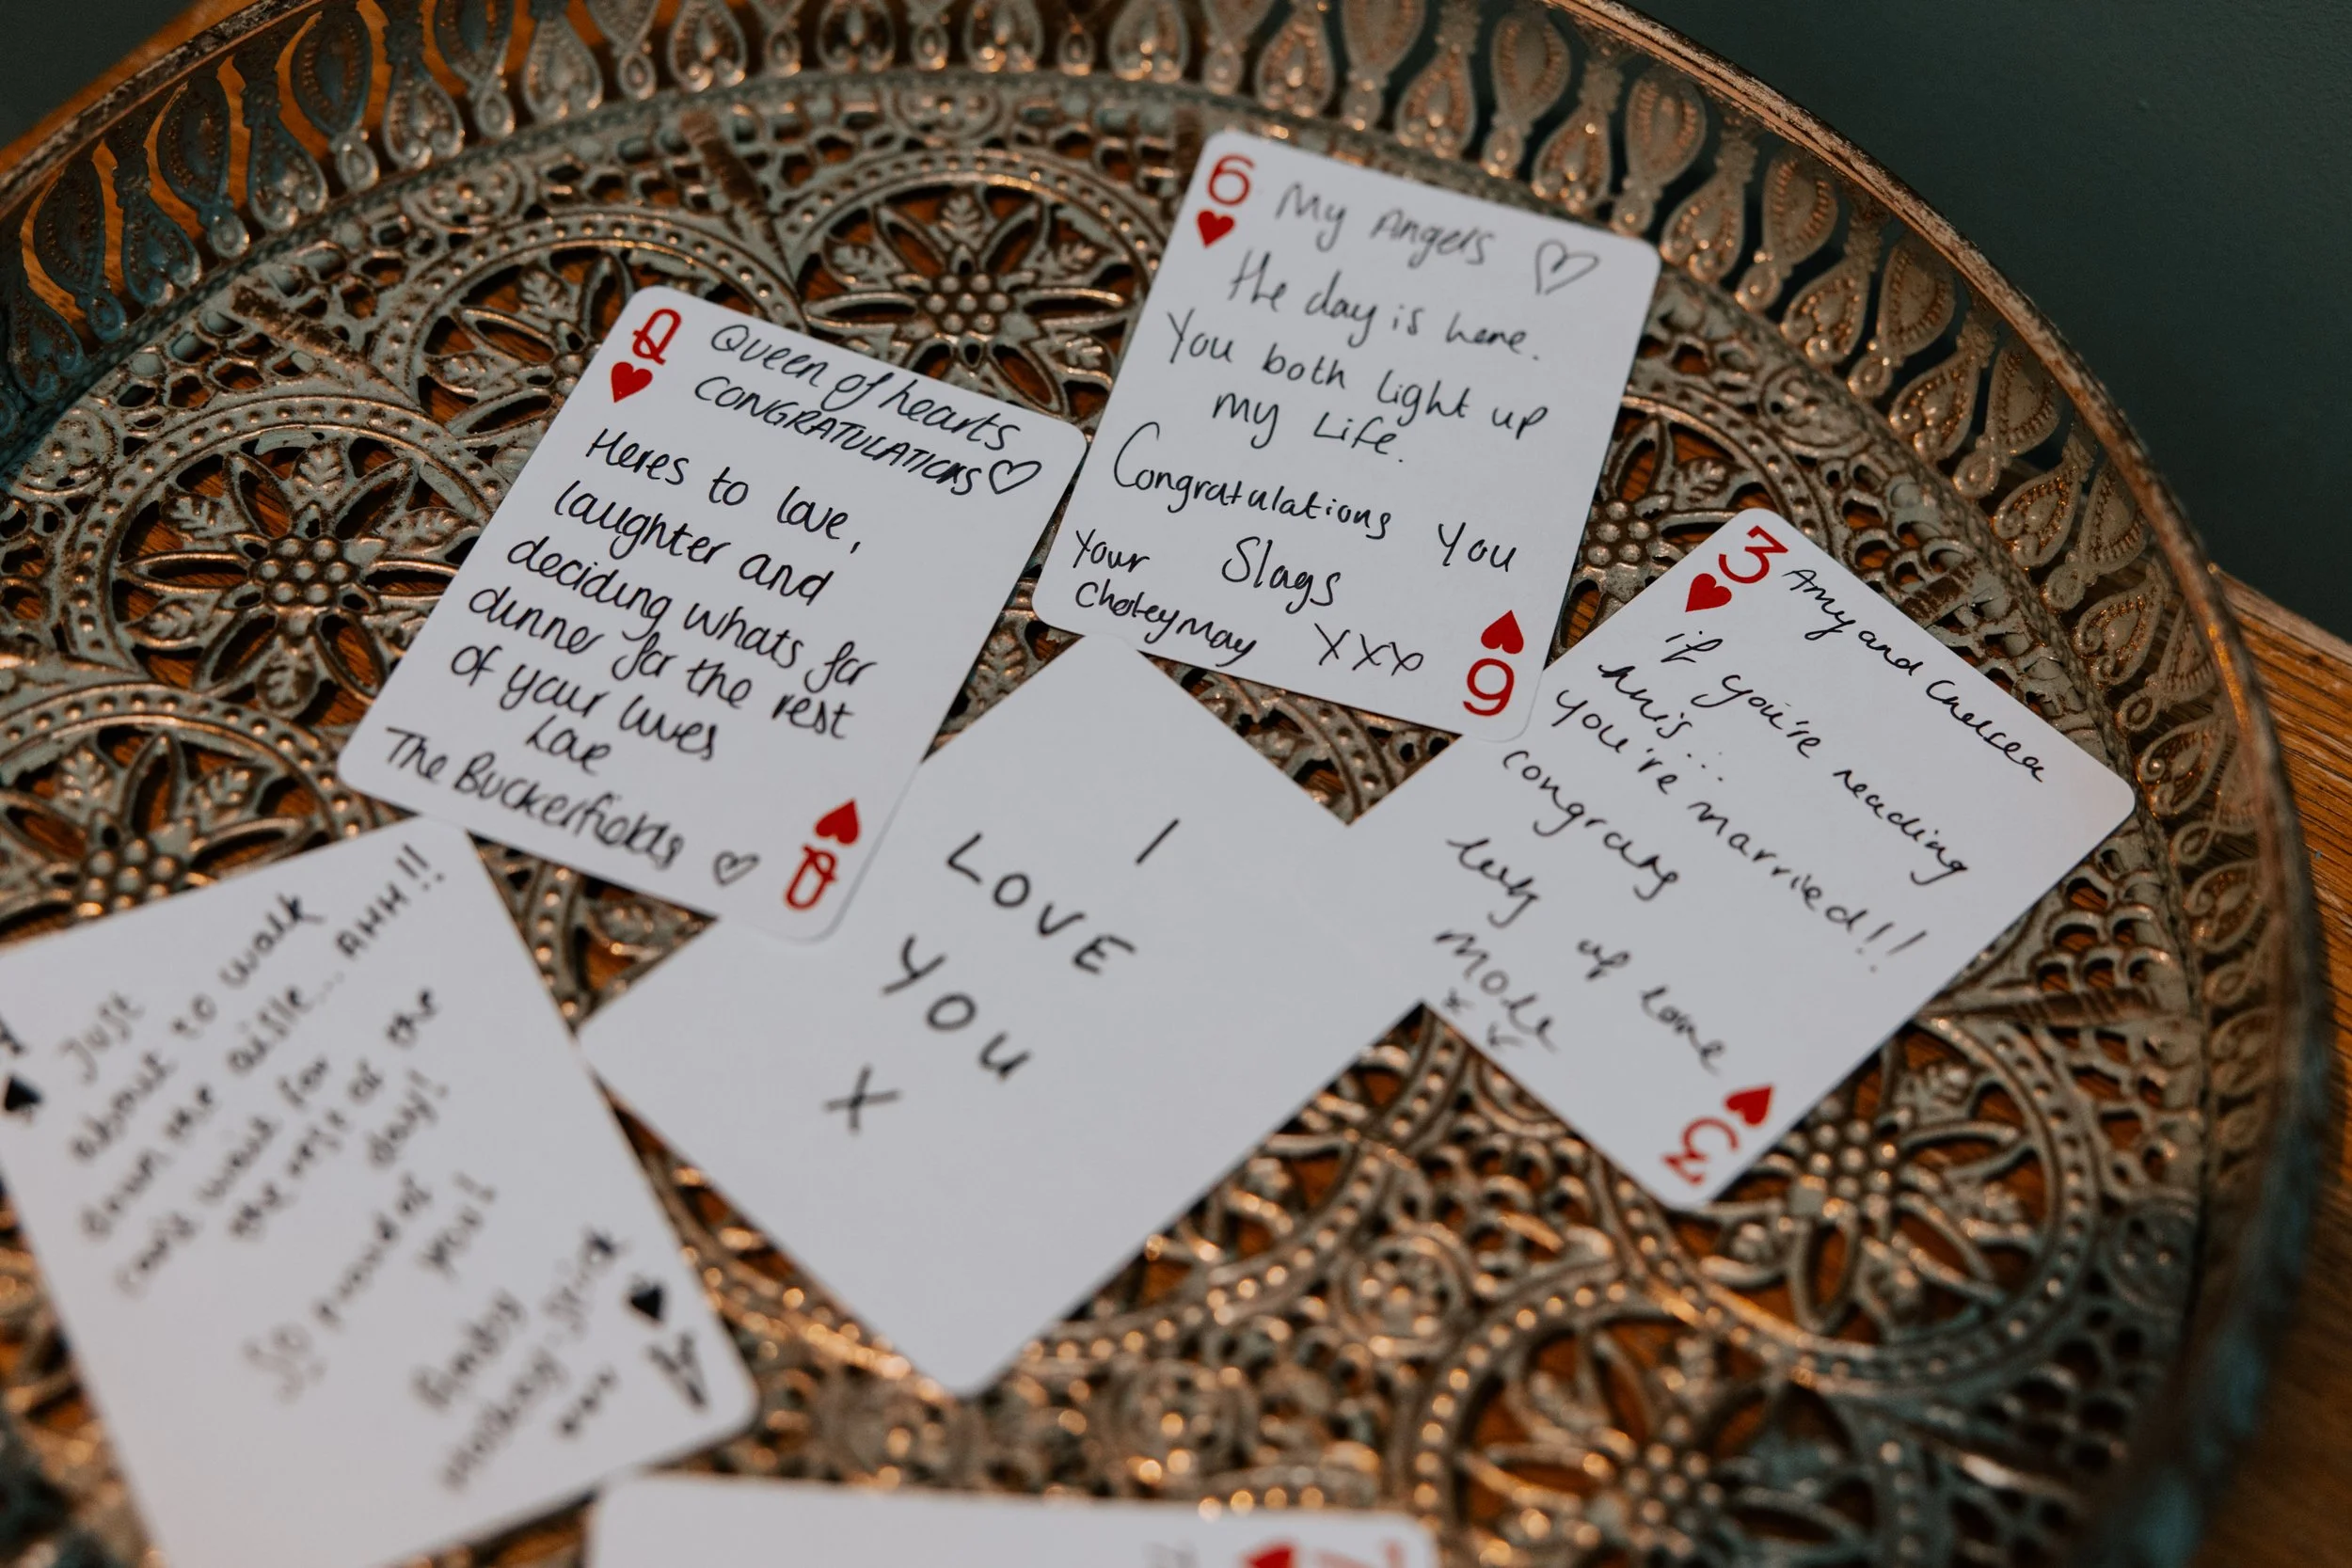 Q
Queen of hearts
CONGRATULATIONS
Heres to love,
laughter and
deciding whats for
dinner for the rest
of your lives
Love
The Buckerfields
Q
6
My Angels
the day is here.
You both light up
my Life.
Congratulations you
Your Slags
xxx
6
3
Amy and Chelsea
if you're reading
this...
you're married!!
congrats
of love
3
I
LOVE
YOU
X
Just
about to walk
down the aisle... AHH!!
can't wait for
the rest of the
day!
So proud of
you!
A
7